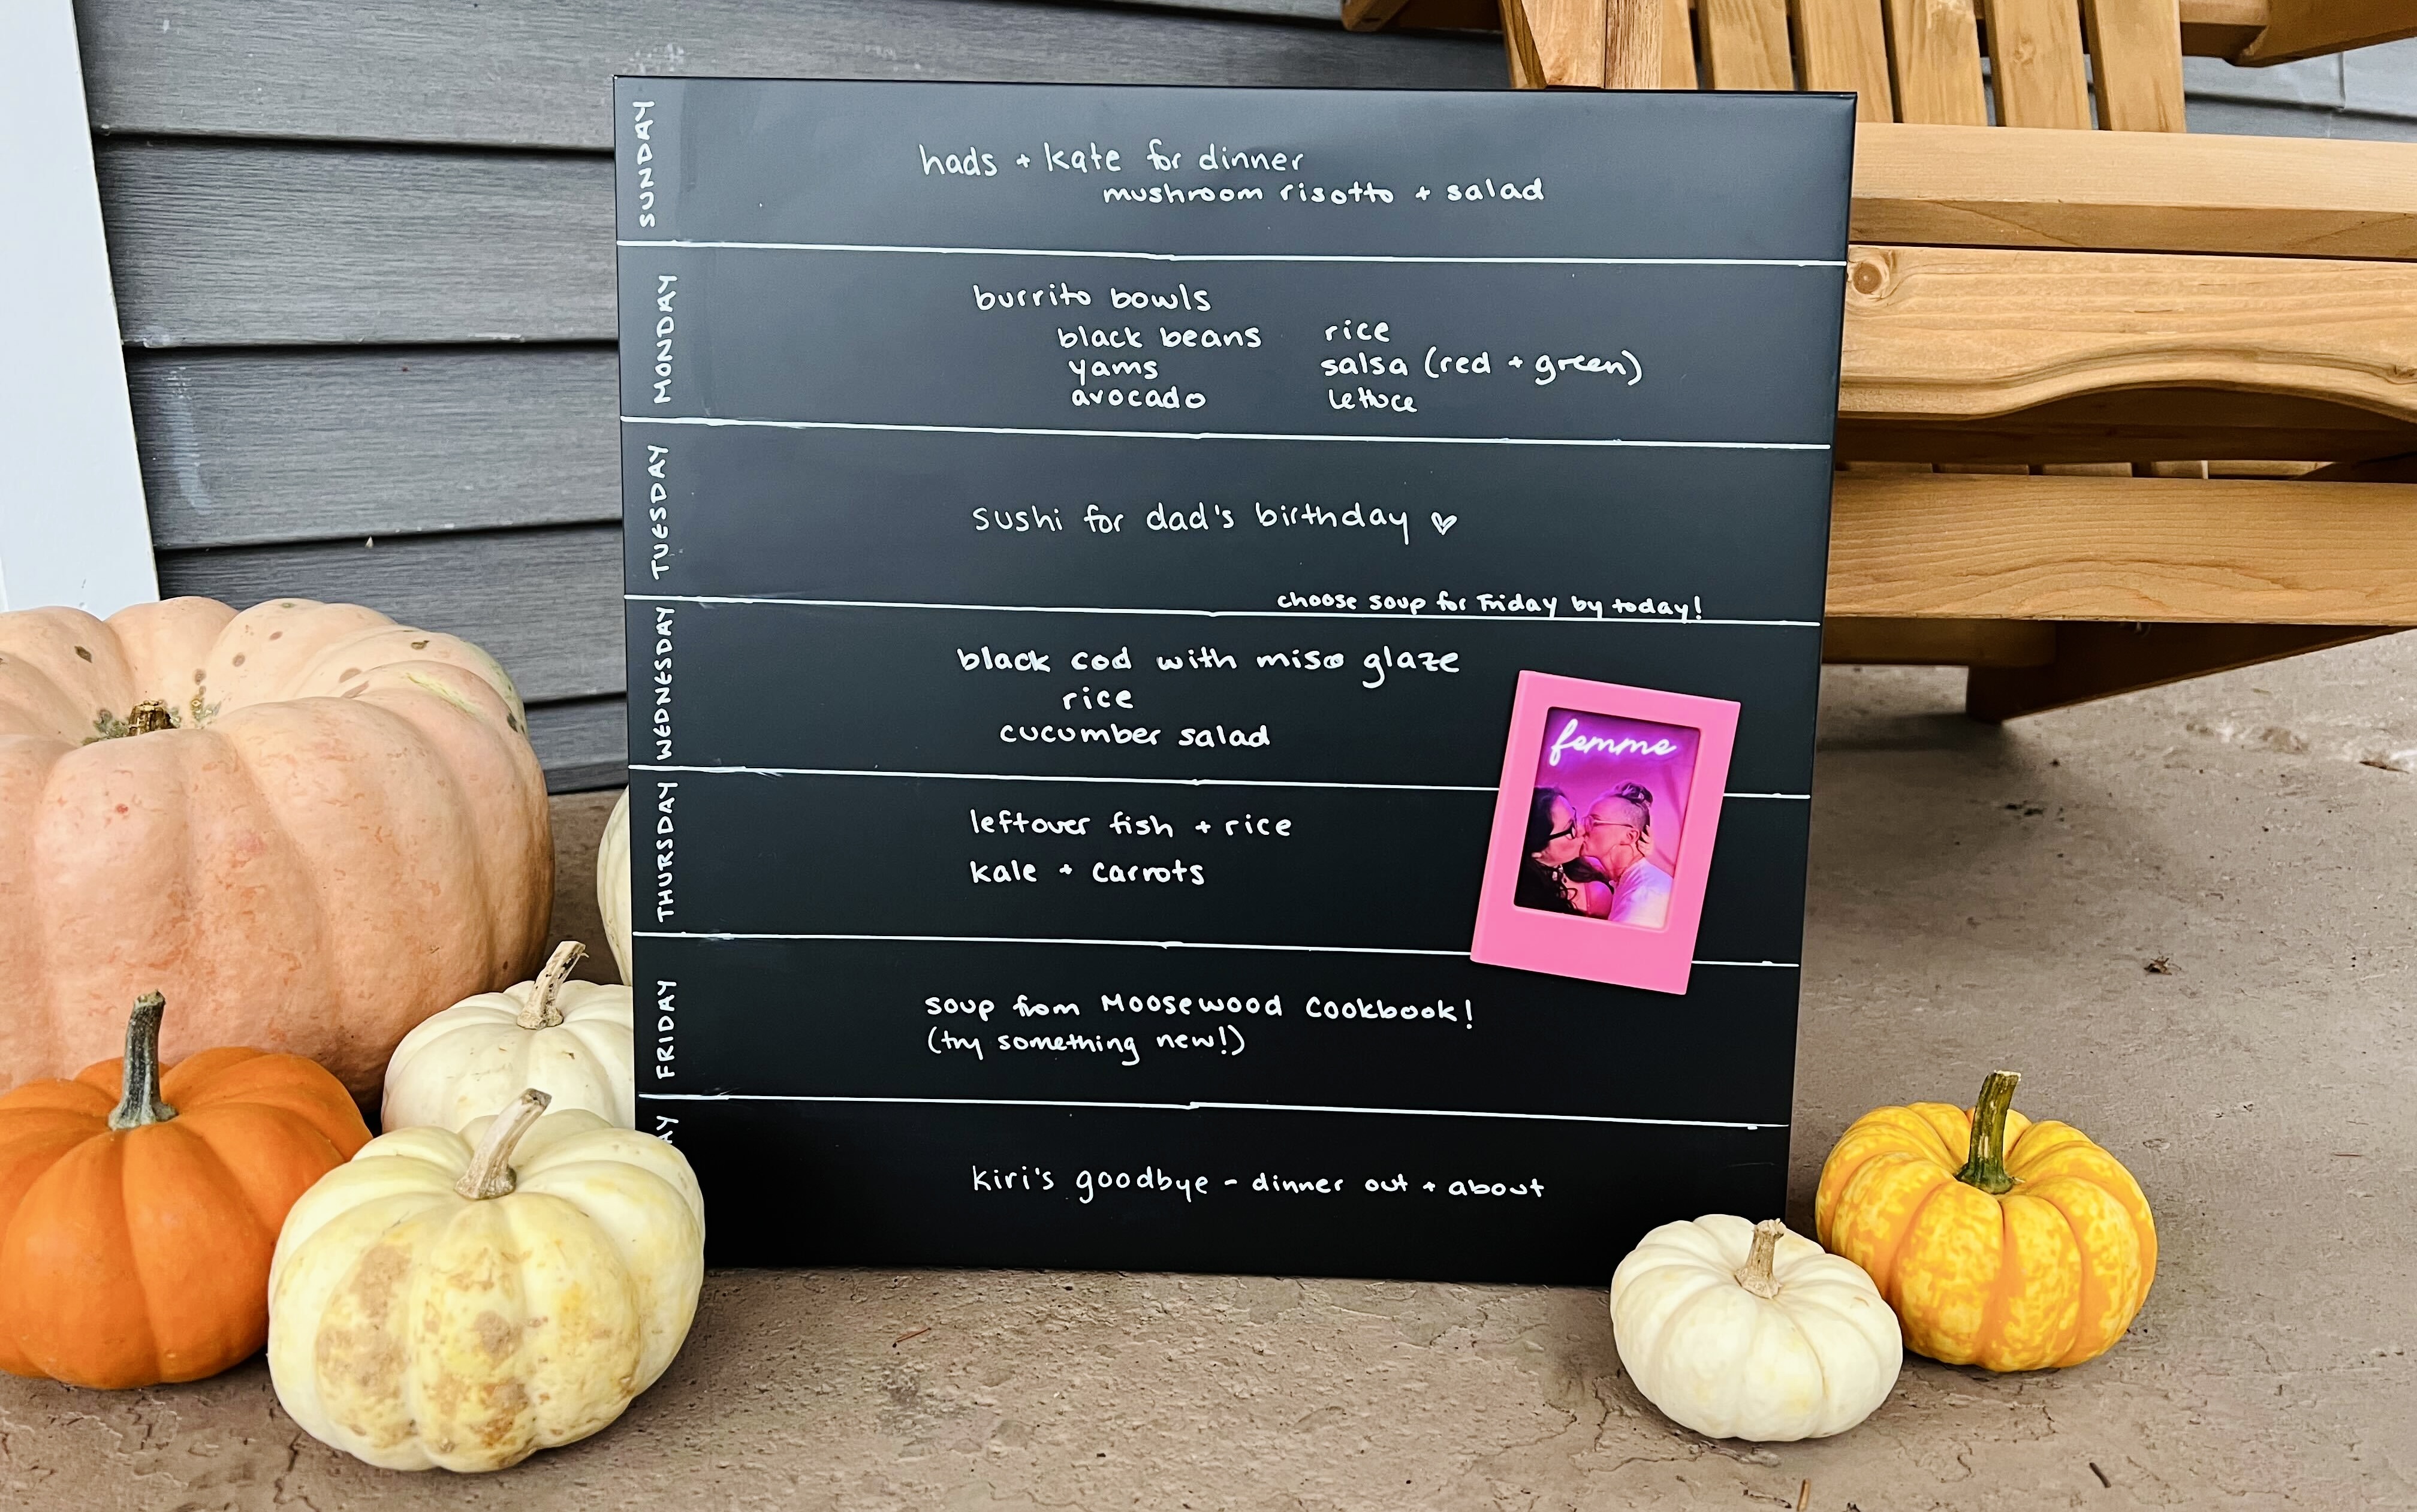 SUNDAY
hads + kate for dinner
mushroom risotto + salad
MONDAY
burrito bowls
black beans rice
yams salsa (red + green)
avocado lettuce
TUESDAY
sushi for dad's birthday ♡
choose soup for Friday by today!
WEDNESDAY
black cod with miso glaze
rice
cucumber salad
femme
THURSDAY
leftover fish + rice
kale + carrots
FRIDAY
soup from Moosewood Cookbook!
(try something new!)
AY
kiri's goodbye - dinner out + about